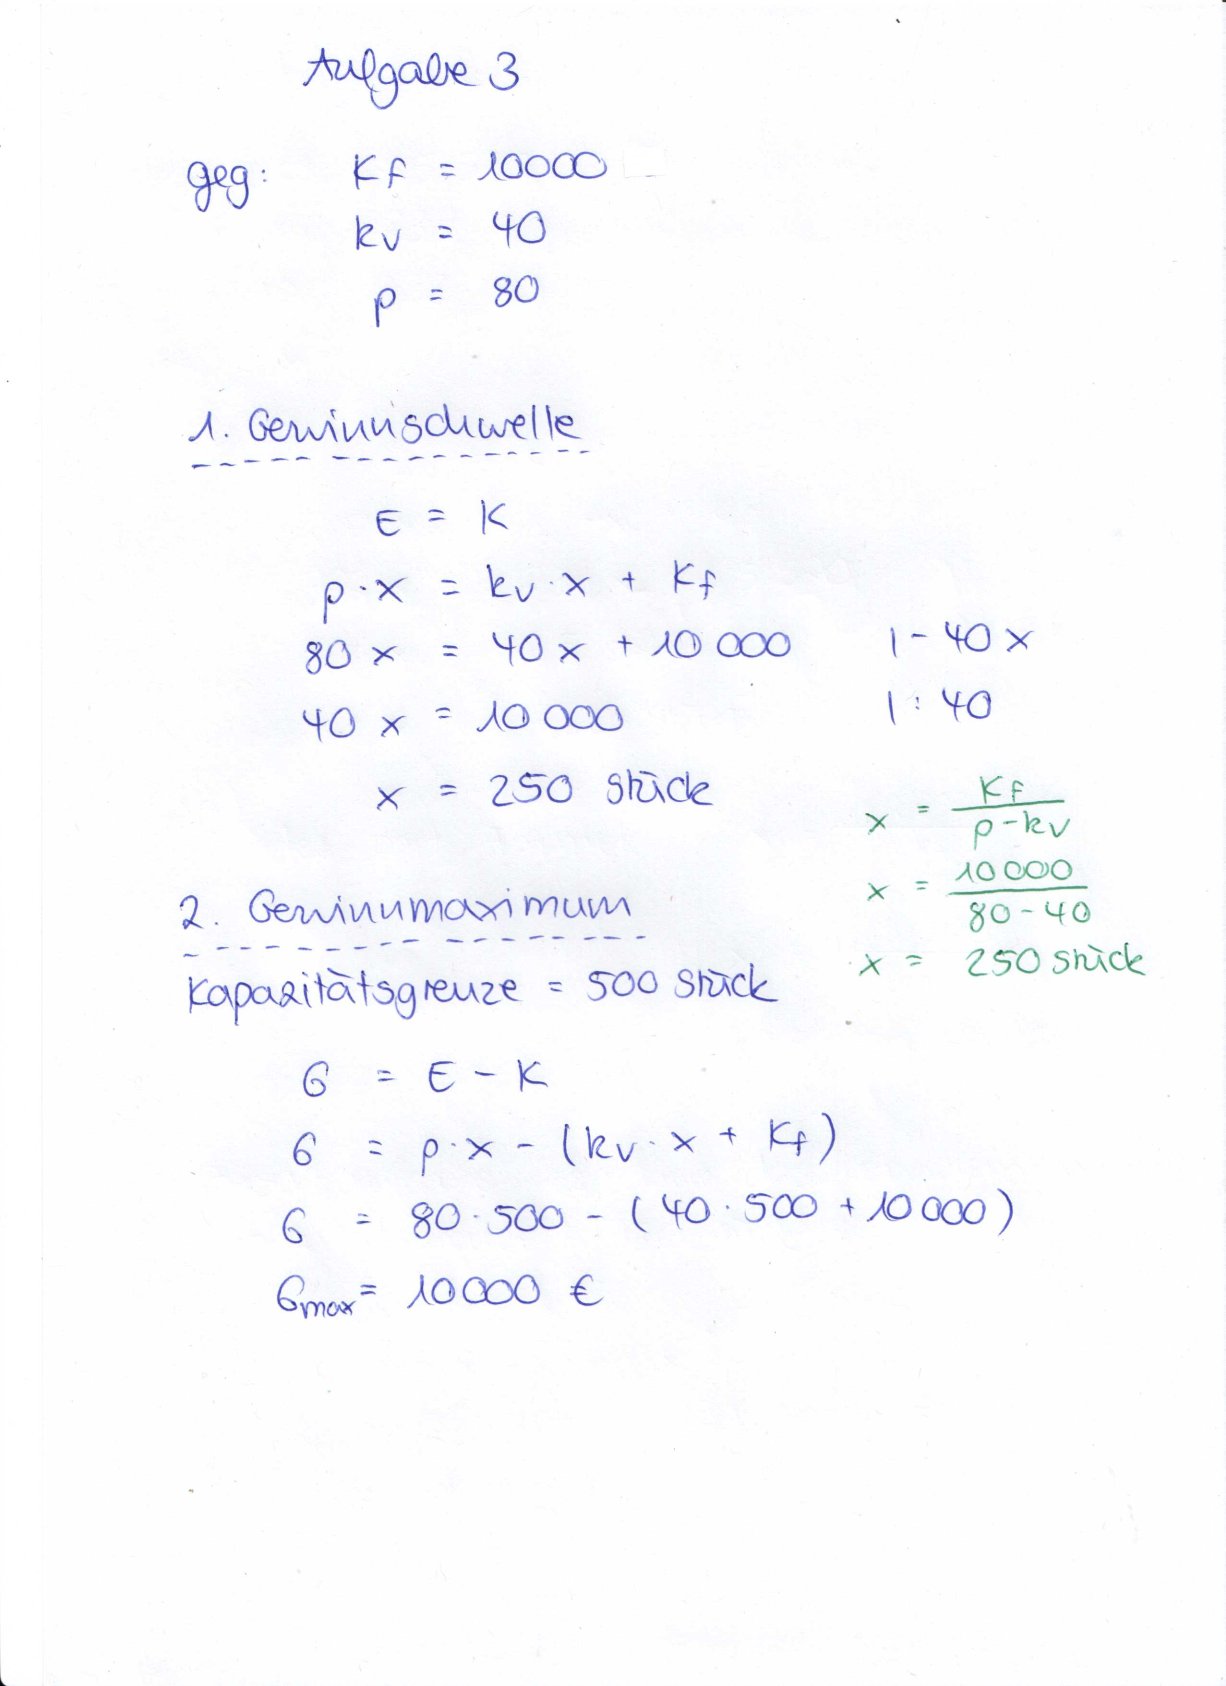 Aufgabe 3
geg: Kf = 10000
kv = 40
p = 80
1. Gewinnschwelle
E = K
p · x = kv · x + Kf
80 x = 40 x + 10 000 | - 40 x
40 x = 10 000 | : 40
x = 250 Stück
x = Kf / p - kv
x = 10 000 / 80 - 40
x = 250 Stück
2. Gewinnmaximum
Kapazitätsgrenze = 500 Stück
G = E - K
G = p · x - (kv · x + Kf)
G = 80 · 500 - (40 · 500 + 10 000)
Gmax = 10 000 €